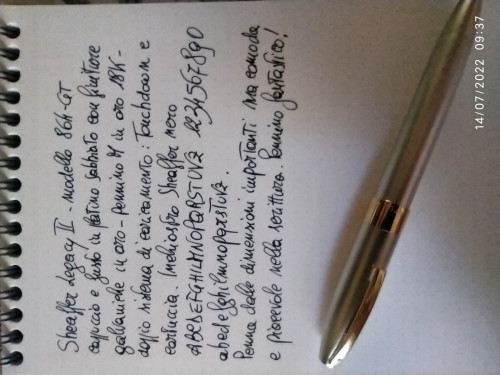 Sheaffer Legacy II - modello 864-GT
cappuccio e fusto in platino sabbiato con finiture
galvaniche in oro - pennino M in oro 18K -
doppio sistema di caricamento: Touchdown e
cartuccia. Inchiostro Sheaffer nero
ABCDEFGHILMNOPQRSTUVZ 1234567890
abcdefghilmnopqrstuvz.
Penna dalle dimensioni importanti ma comoda
e piacevole nella scrittura. Pennino fantastico!
14/07/2022 09:37